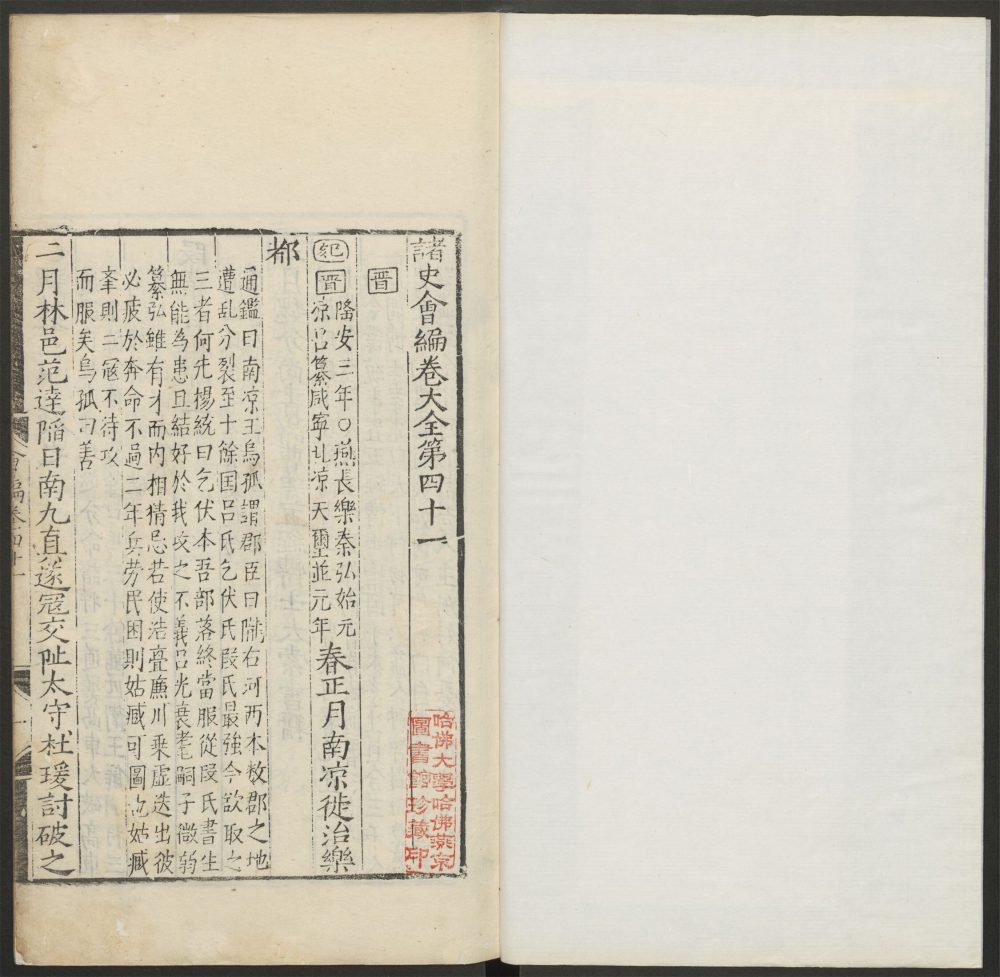 諸史會編卷大全第四十一
晋
紀晋隆安三年○燕長樂秦弘始元
凉呂纂咸寧北凉天璽並元年春正月南凉徙治樂
都
通鑑曰南凉王烏孤謂郡臣曰隴右河西本数郡之地
遭乱分裂至十餘囯呂氏乞伏氏段氏最強今欲取之
三者何先楊統曰乞伏本吾部落終當服從段氏書生
無能為患且結好於我攻之不義呂光衰耄嗣子微弱
纂弘雖有才而内相猜忌若使浩亹廉川乗虚迭出彼
必疲於奔命不過二年兵劳民困則姑臧可圖也姑臧
峯則二寇不待攻
而服矣烏孤曰善
二月林邑范達陷日南九直遂寇交阯太守杜瑗討破之
會編卷四十一
一
哈佛大學哈佛燕京
圖書館珍藏印